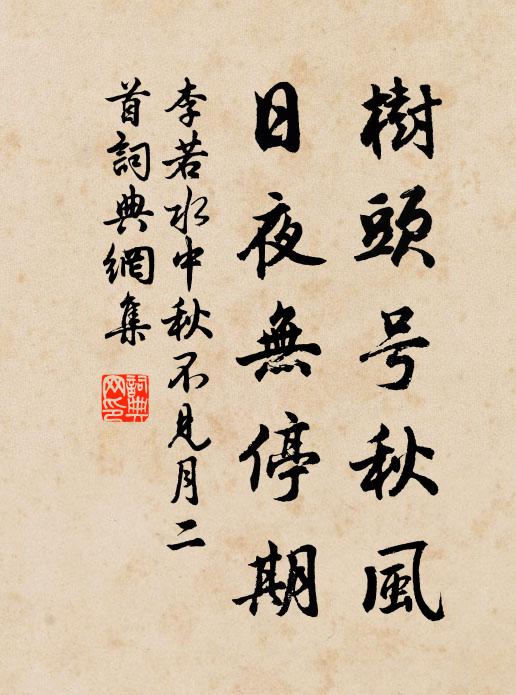 樹頭号秋風
日夜無停期
李若水中秋不見月二
首詞典網集
詞典
网印